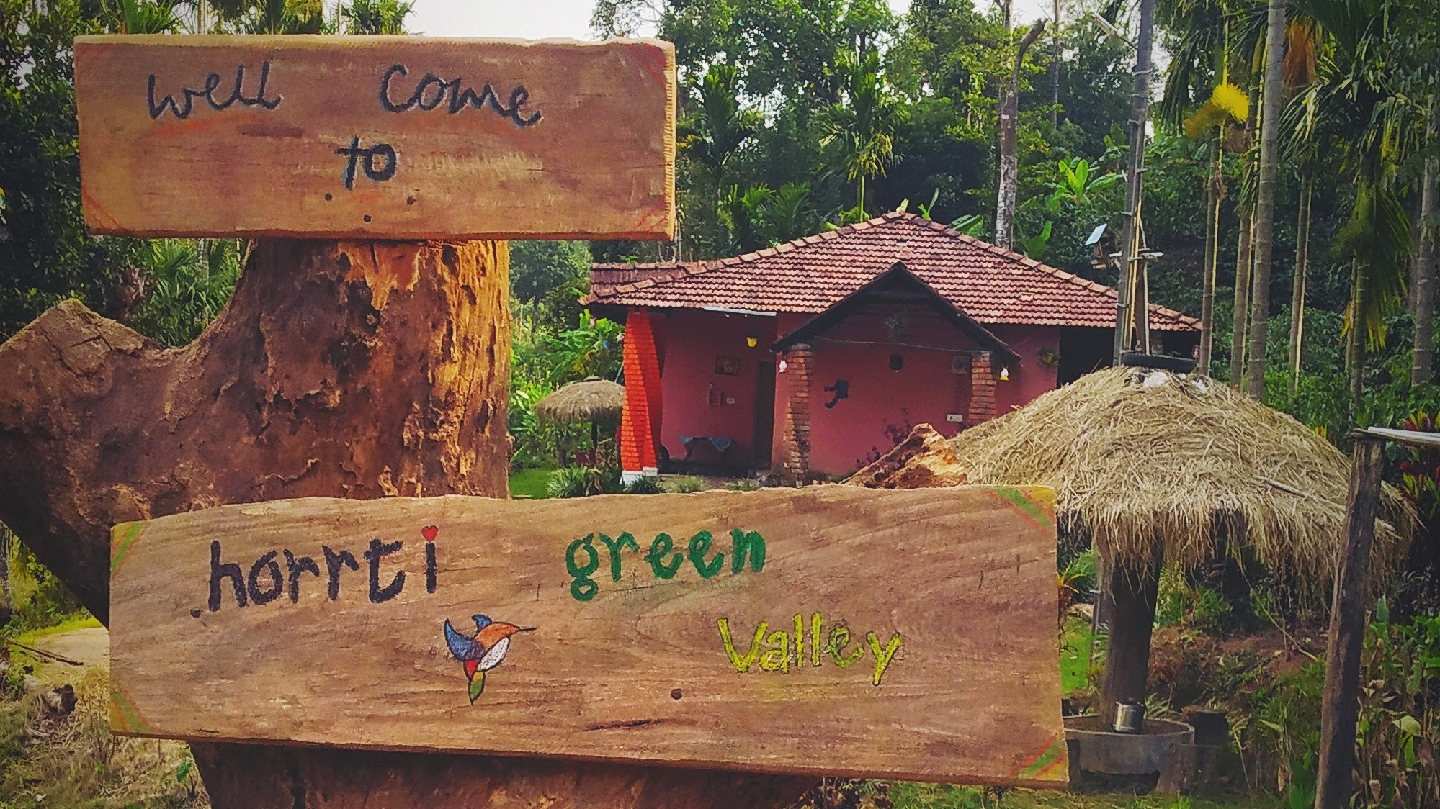 well come
to
horrti green
Valley